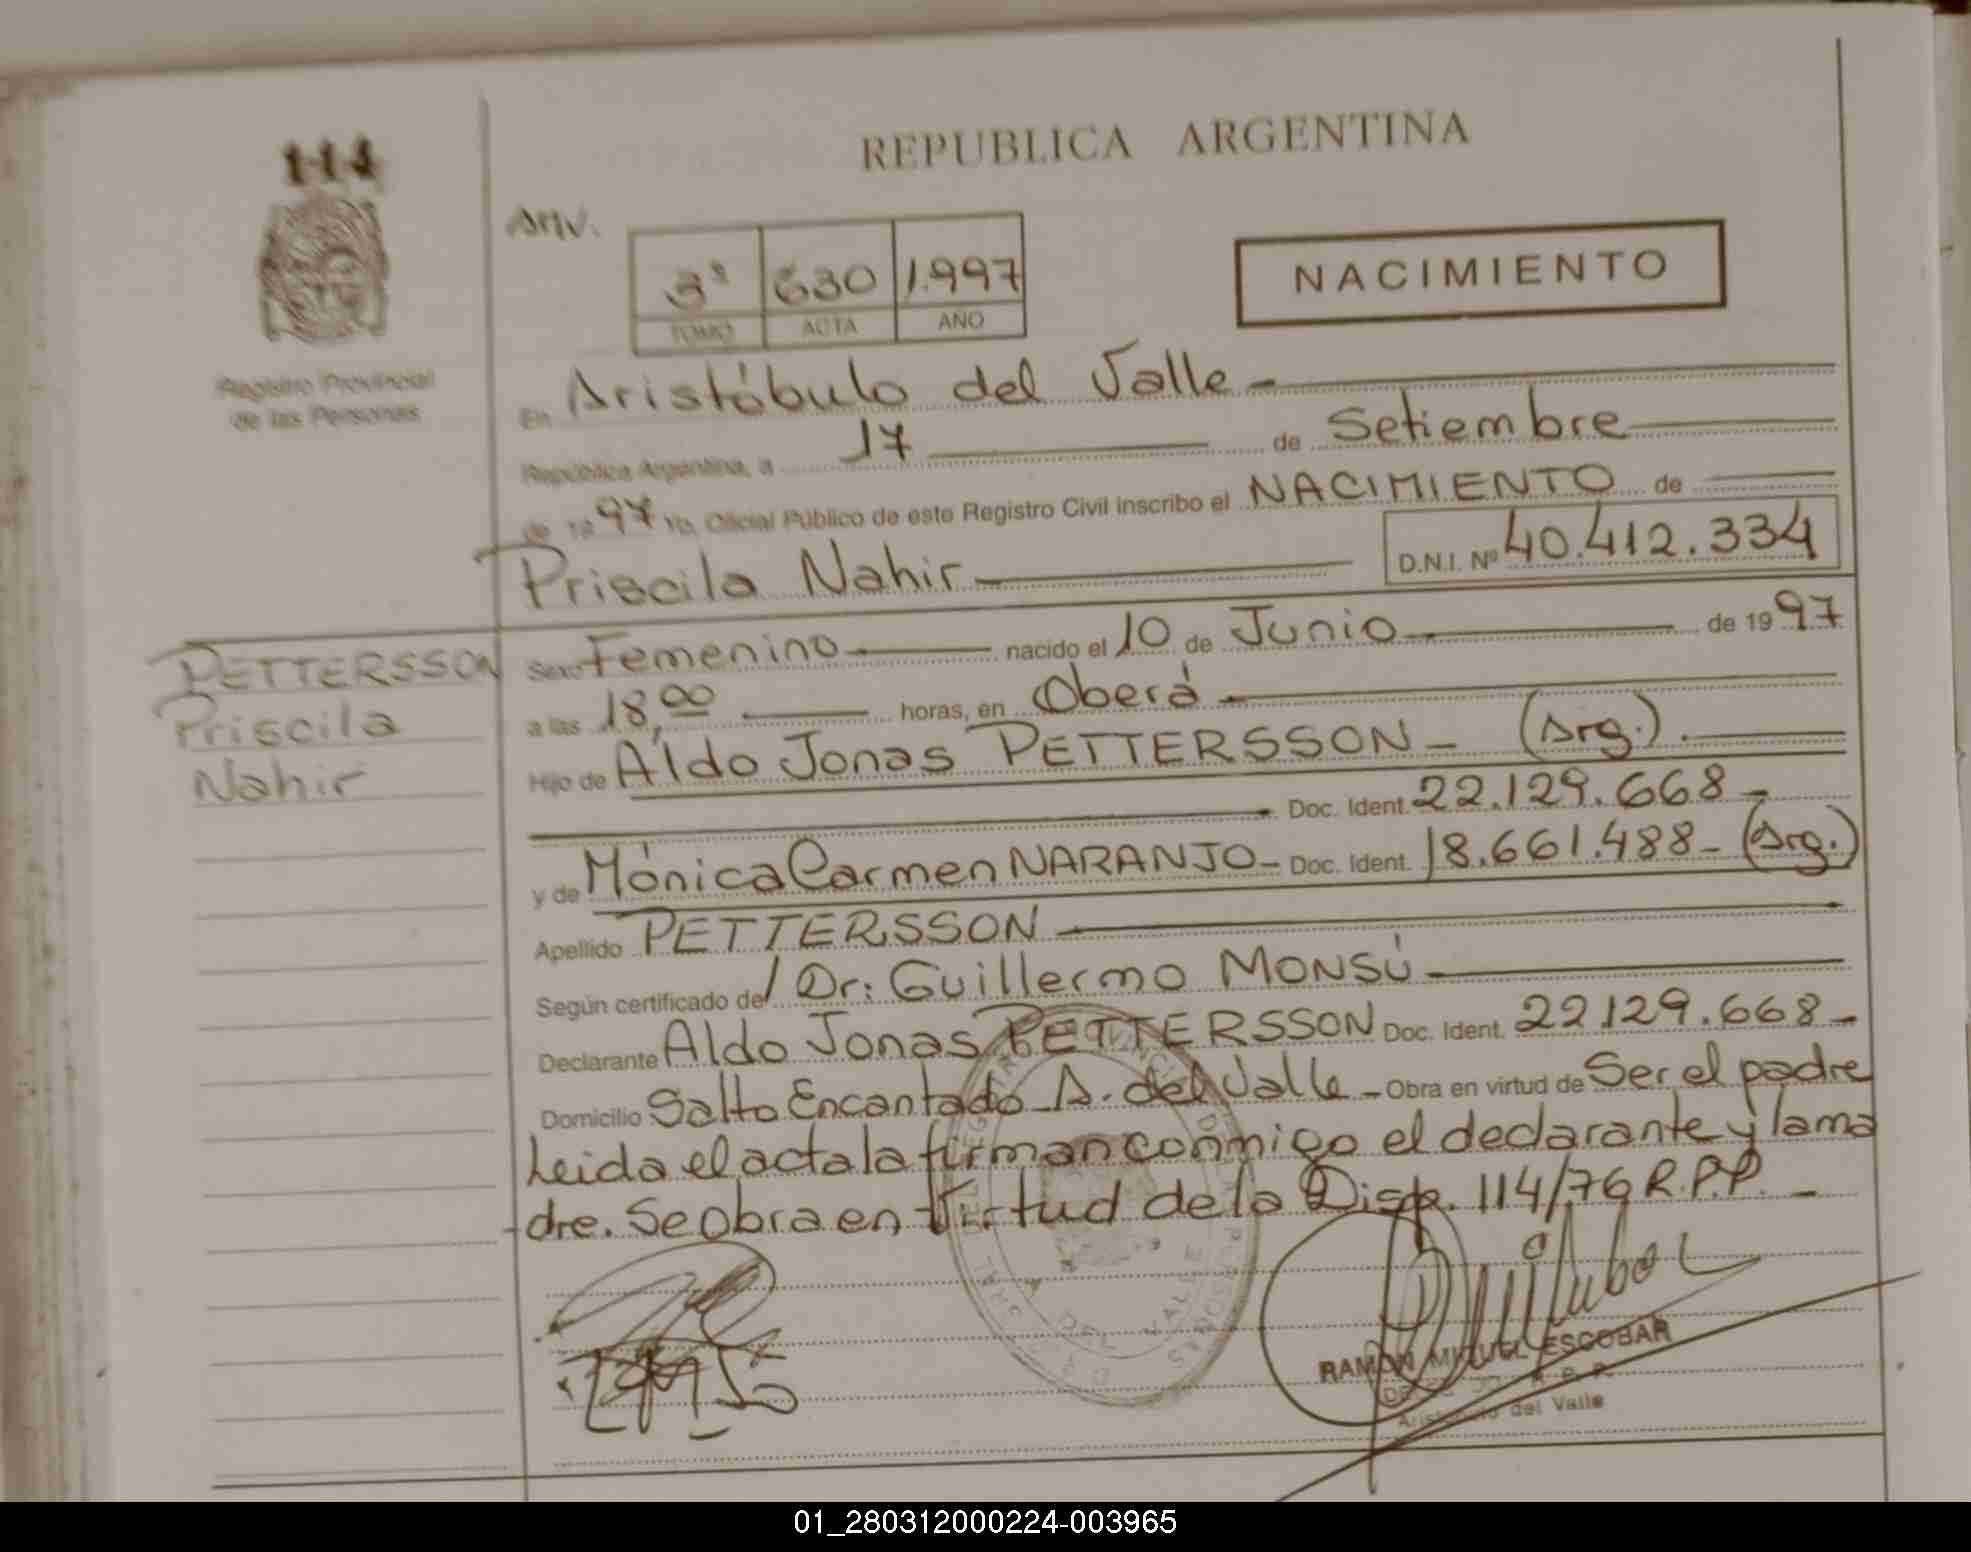 114
REPUBLICA ARGENTINA
Anv.
3º 630 1.997
TOMO ACTA AÑO
NACIMIENTO
Registro Provincial
de las Personas
En Aristóbulo del Valle
República Argentina, a 17 de Setiembre
de 19 97 Yo, Oficial Público de este Registro Civil inscribo el NACIMIENTO de
Priscila Nahir D.N.I. Nº 40.412.334
PETTERSSON
Priscila
Nahir
Sexo Femenino nacido el 10 de Junio de 19 97
a las 18,00 horas, en Oberá
Hijo de Aldo Jonas PETTERSSON - (Arg.)
Doc. Ident. 22.129.668 -
y de Mónica Carmen NARANJO - Doc. Ident. 18.661.488 - (Arg.)
Apellido PETTERSSON
Según certificado del Dr: Guillermo MONSÚ
Declarante Aldo Jonas PETTERSSON Doc. Ident. 22129.668 -
Domicilio Salto Encantado - A. del Valle - Obra en virtud de Ser el padre
Leida el acta la firman conmigo el declarante y la ma
-dre. Se obra en virtud de la Disp. 114/76 R.P.P. -
RAMON MIGUEL ESCOBAR
R. P. P.
Aristóbulo del Valle
DEL VALLE
01_280312000224-003965